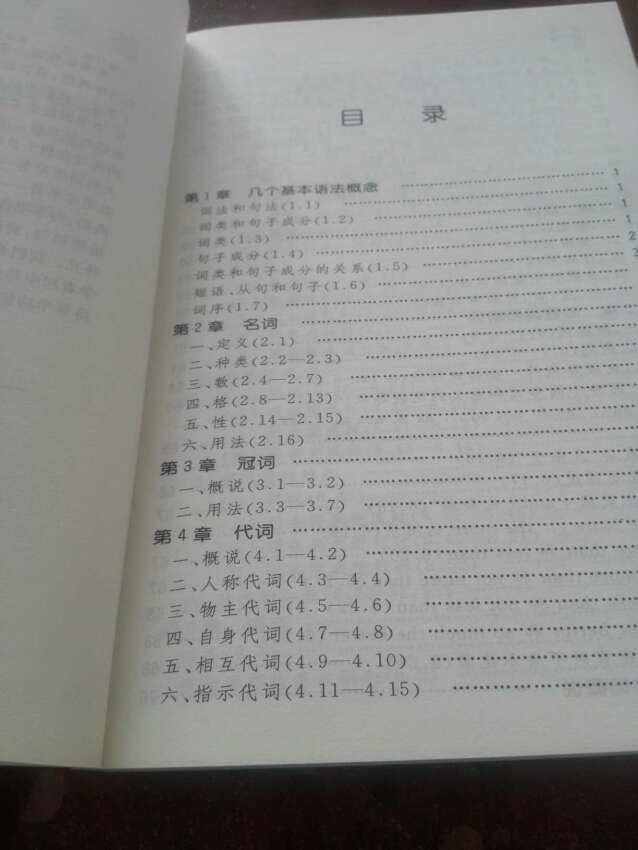 目 录
第1章 几个基本语法概念 …… 1
词法和句法(1.1) …… 1
词类和句子成分(1.2) …… 1
词类(1.3) …… 1
句子成分(1.4) …… 2
词类和句子成分的关系(1.5) …… 3
短语、从句和句子(1.6) ……
词序(1.7) ……
第2章 名词 ……
一、定义(2.1) ……
二、种类(2.2—2.3) ……
三、数(2.4—2.7) ……
四、格(2.8—2.13) ……
五、性(2.14—2.15) ……
六、用法(2.16) ……
第3章 冠词 ……
一、概说(3.1—3.2) ……
二、用法(3.3—3.7) ……
第4章 代词 ……
一、概说(4.1—4.2) ……
二、人称代词(4.3—4.4) ……
三、物主代词(4.5—4.6) ……
四、自身代词(4.7—4.8) ……
五、相互代词(4.9—4.10) ……
六、指示代词(4.11—4.15) ……